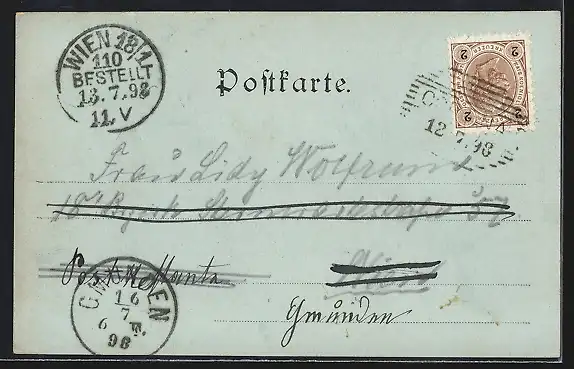 WIEN 18/1
110
BESTELLT
13.7.98
11.V
Postkarte.
2 KREUZER 2
2 2
12.7.98
Frau Lidy Wolfrum
18 Bezirk 57
Wien
Postrestante
Gmunden
GMUNDEN
16
7
6
98